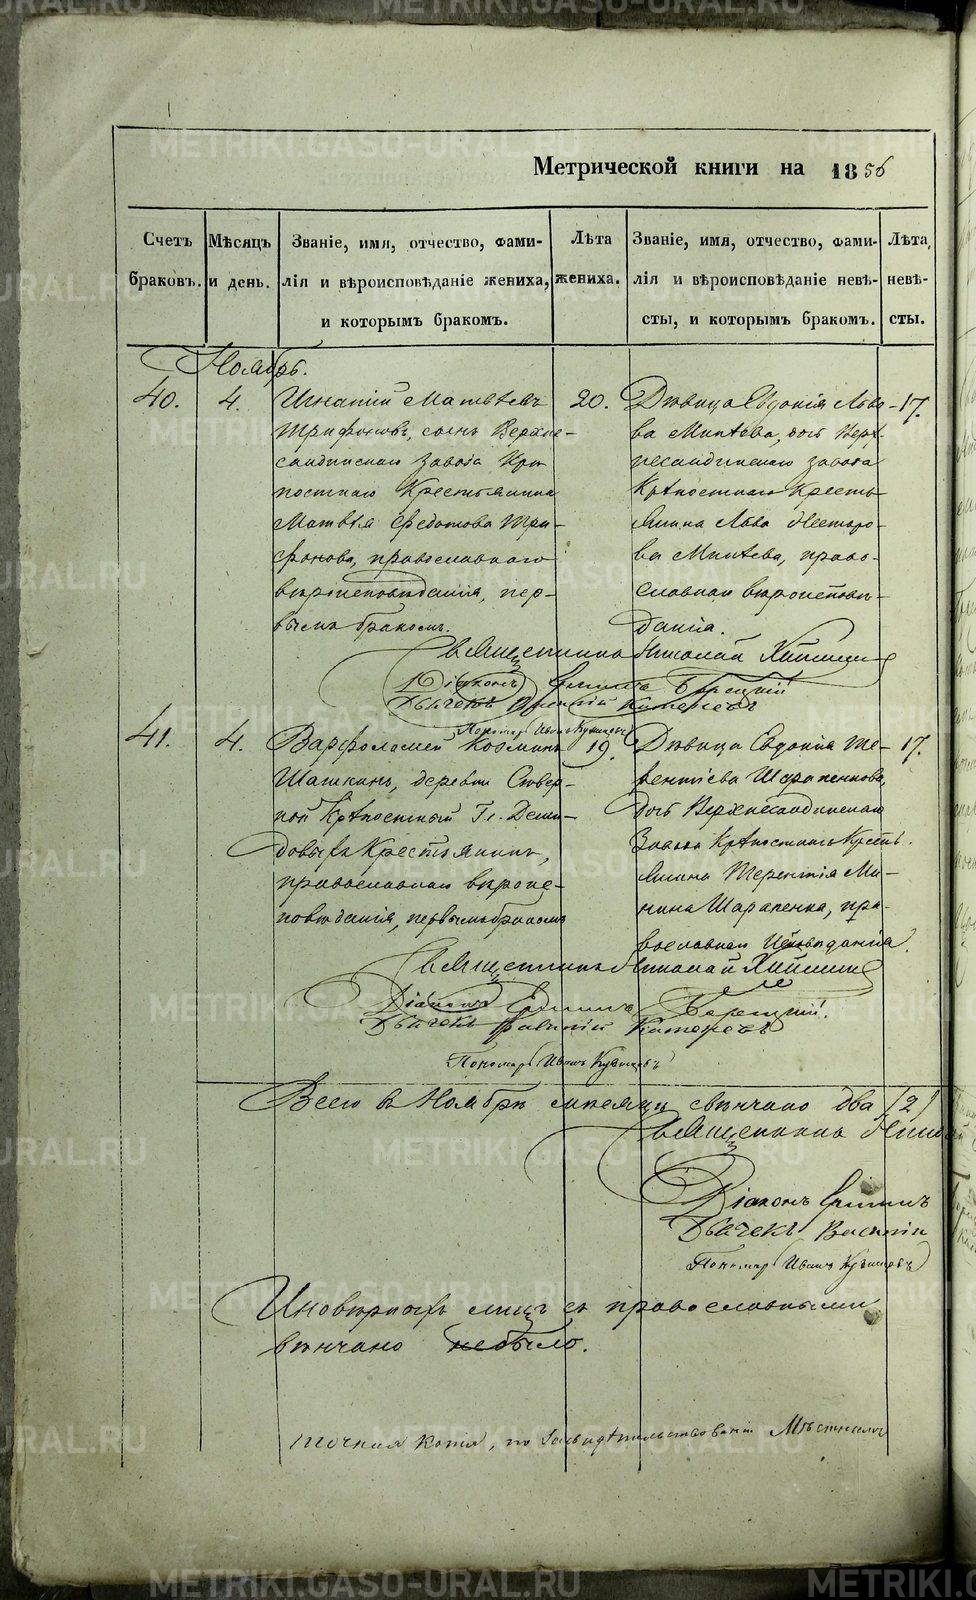 Метрической книги на 1856
Счетъ браковъ.
Мѣсяцъ и день.
Званіе, имя, отчество, фами-
лія и вѣроисповѣданіе жениха,
и которымъ бракомъ.
Лѣта жениха.
Званіе, имя, отчество, фами-
лія и вѣроисповѣданіе невѣ-
сты, и которымъ бракомъ.
Лѣта невѣ-
сты.
Ноябрь.
40.
4.
Игнатій Матвѣевъ
Трифоновъ, сынъ Верхне-
салдинскаго завода Крѣ
постнаго Крестьянина
Матвѣя Федотова Три-
фонова, православнаго
вѣроисповѣданія, пер-
вымъ бракомъ.
20.
Дѣвица Евдокія Льво-
ва Минѣева, дочь Верх-
несалдинскаго завода
Крѣпостнаго Кресть-
янина Льва Нестеро-
ва Минѣева, право-
славнаго вѣроисповѣ-
данія.
17.
Священникъ Николай
Діаконъ
Дьячекъ
Пономарь Иванъ
41.
4.
Варфоломей Козминъ
Шашкинъ, деревни Сѣвер-
ной Крѣпостный Гг. Деми-
довыхъ Крестьянинъ,
православнаго вѣроис-
повѣданія, первымъ бракомъ
19.
Дѣвица Евдокія Те-
рентіева Шарапенкова,
дочь Верхнесалдинскаго
Завода Крѣпостнаго Кресть-
янина Терентія Ми-
нина Шарапенка, пра-
вославнаго Исповѣданія.
17.
Священникъ Николай
Діаконъ
Дьячекъ
Пономарь Иванъ
Всего въ Ноябрѣ мѣсяцѣ вѣнчано два (2)
Священникъ
Діаконъ
Дьячекъ
Пономарь Иванъ
Иновѣрныхъ лицъ съ православными
вѣнчано небыло.
точная копія, по Засвидѣтельствованіи Мѣстнымъ
METRIKI.GASO-URAL.RU